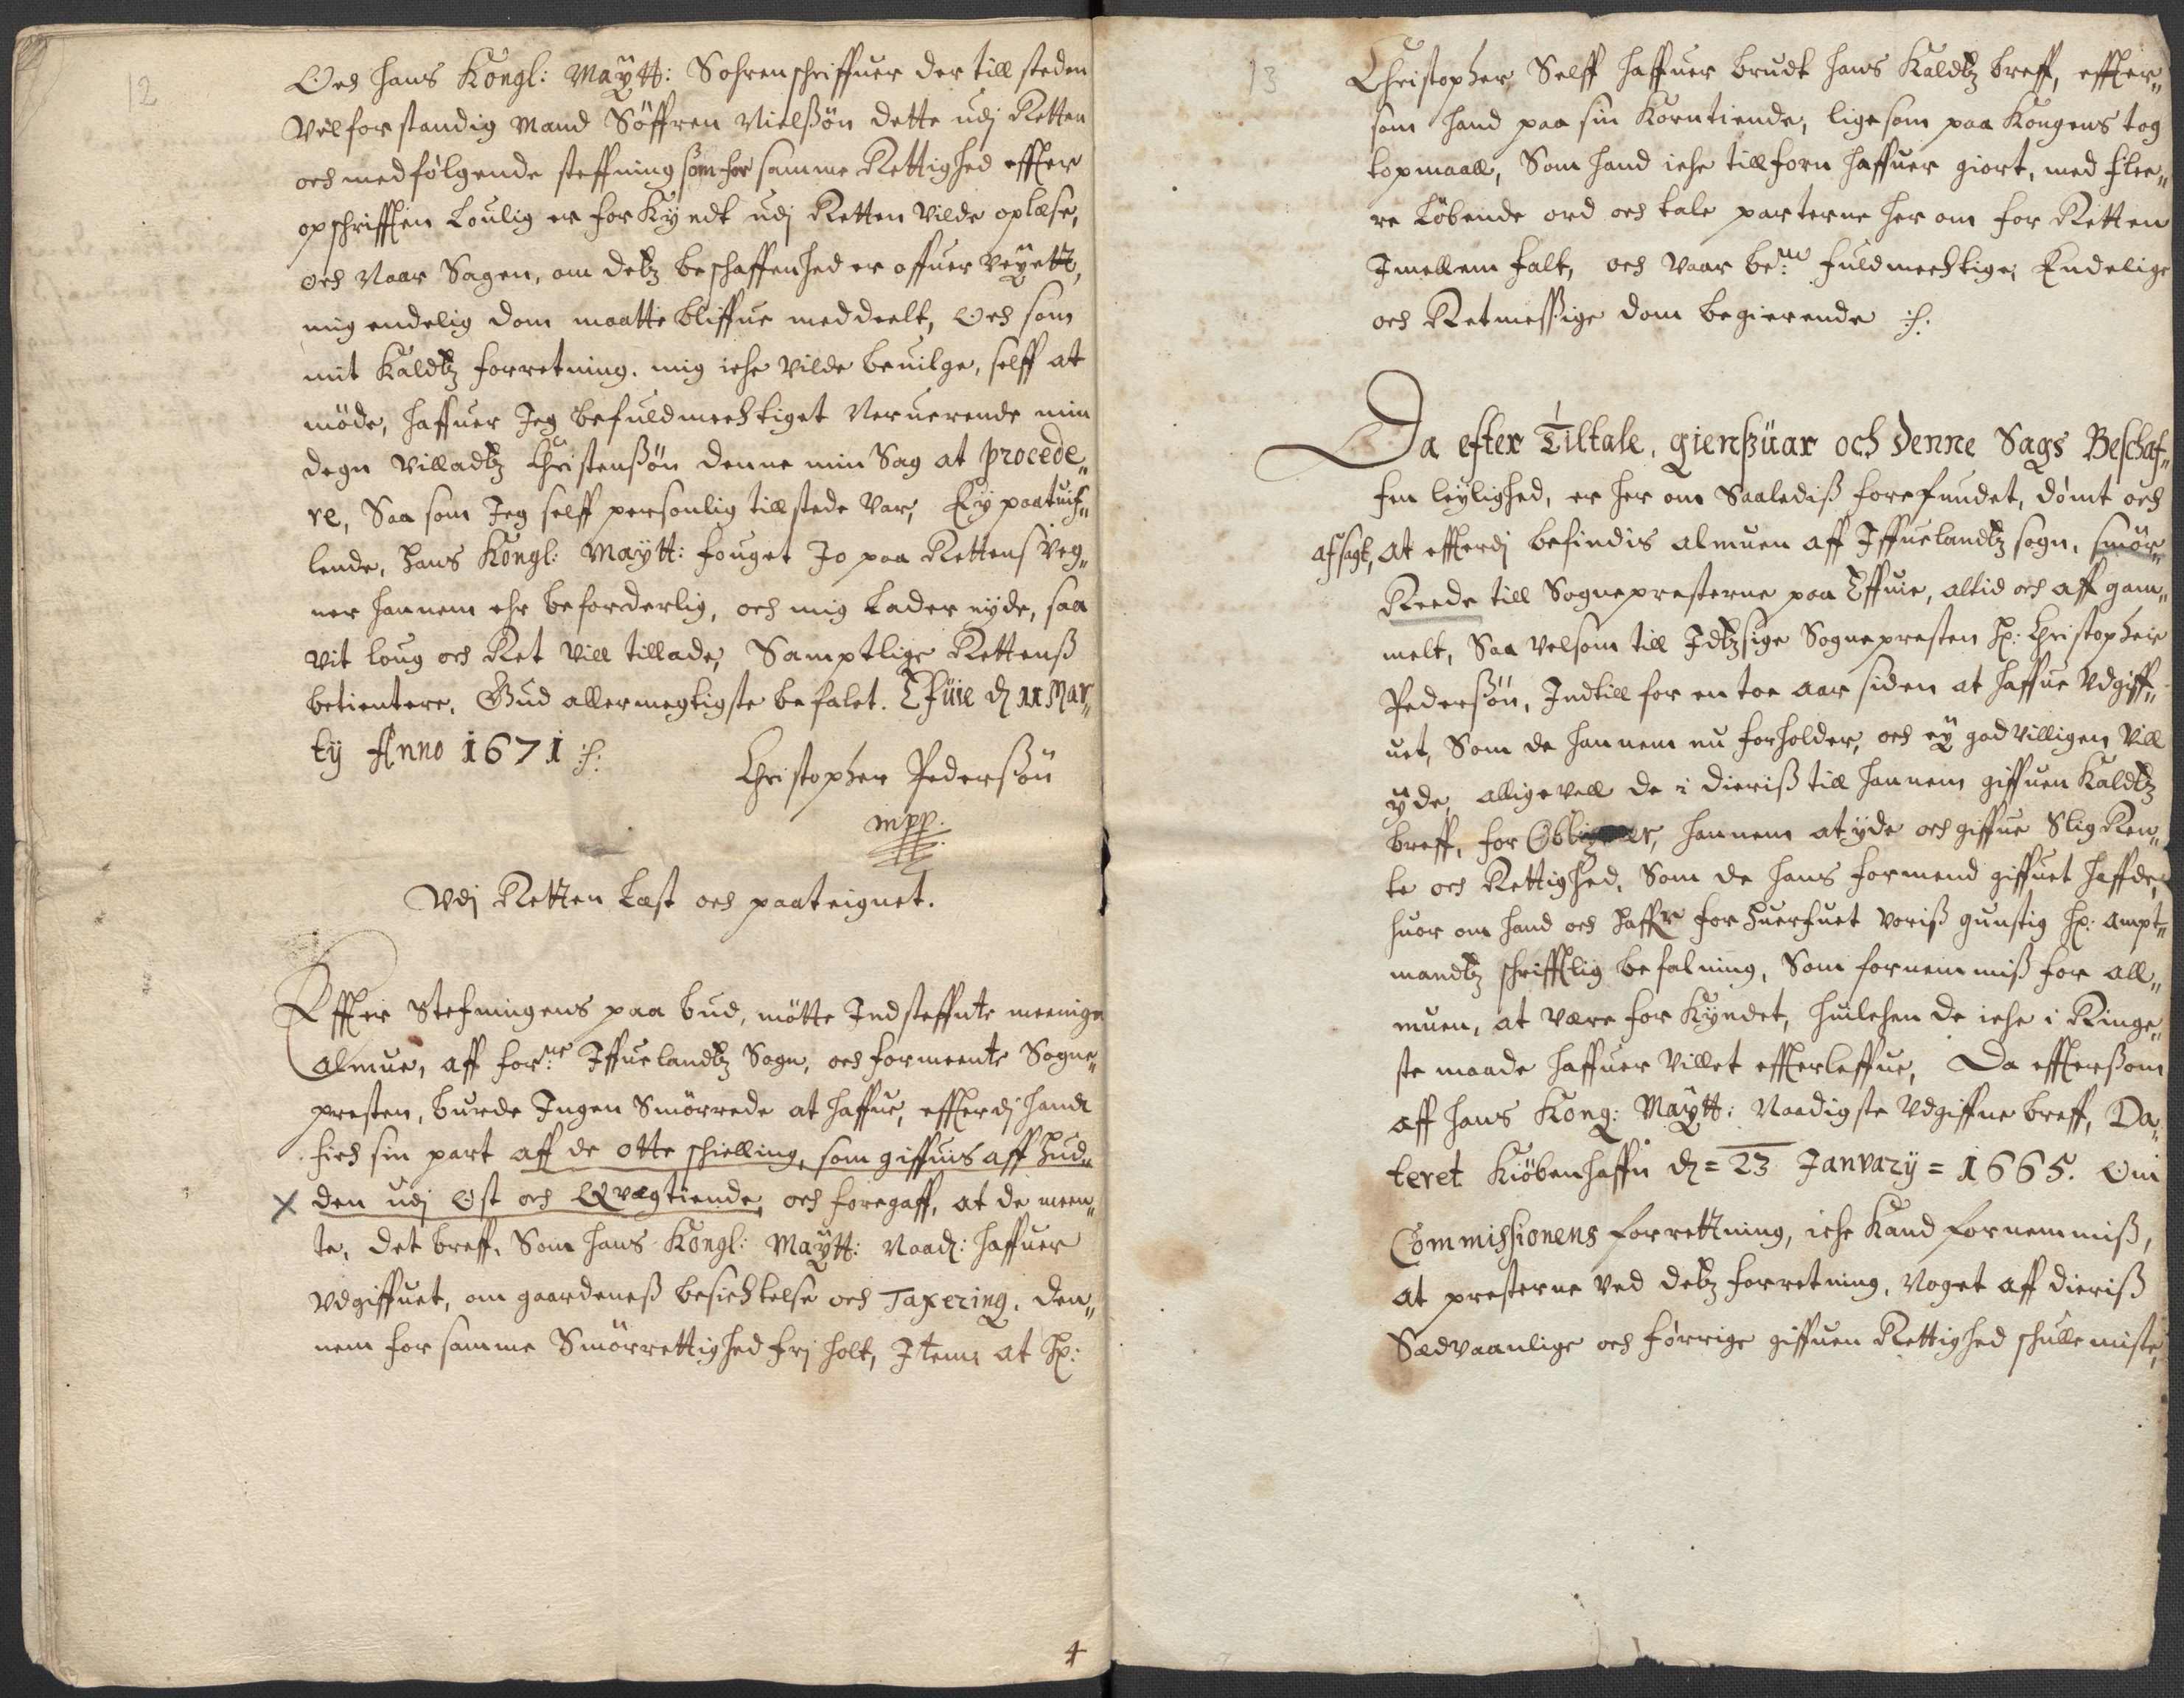 12
Och hans Kongl: Maÿtt: Sohrenschriffuer der till steden
Velforstandig Mand Söffren Nielßön dette udj Retten
och medfølgende steffning som for samme Rettighed effter
opschrifften Loulig er forKyndt udj Retten Vilde oplæse,
och Naar Sagen, om detz beschaffenhed er offuer Veÿett,
mig endelig dom maatte bliffue meddeelt, Och som
mit Kaldtz forretning, mig iche Vilde beuilge, selff at
møde, haffuer Jeg befuldmechtiget Neruerende min
degn Villadtz Christenßön denne min Sag at procede„
re, Saa som Jeg selff personlig tillstede var, Ey paatuif„
lende, Hans Kongl: Maÿtt: fouget Jo paa Rettens Veg„
ner hannem ehr beforderlig, och mig Lader nÿde, saa
vit loug och Ret Vill tillade, Samptlige Rettenß
betientere, Gud allermegtigste befalet. Tffuie d 11 Mar„
tÿ Anno 1671 :/:
Christopher Pederßön
mpp.
Vdj Retten Læst och paateignet.
Effter Stefningens paa bud, møtte Indsteffnte meenige
Almue, aff for:ne Iffuelandtz Sogn, och formeente Sogne„
presten, burde Ingen Smörrede at haffue, effterdj hand
fich sin part aff de otte schielling, som giffuis aff Hud„
X den udj Ost och Qvægtiende, och foregaff, at de meen„
te, det breff, Som hans Kongl: Maÿtt: Naad: haffuer
Vdgiffuet, om gaardeneß besichtelse och Taxering, den„
nem for samme Smörrettighed frj holt, Item at Hr:
4
13
Christopher Selff haffuer brudt hans Kaldtz breff, effter„
som hand paa sin Korntiende, ligesom paa Kongens tog
topmaall, Som hand iche tillforn haffuer giort, med flee„
re Løbende ord och tale parterne her om for Retten
Imellem falt, och Vaar be:te fuldmechtige, Endelige
och Retmessige dom begierende :/:
Da efter Tiltale, gienßuar och denne Sags Beschaf„
fen leylighed, er her om Saalediß forefundet, dømt och
afsagt, At effterdj befindis almuen aff Iffuelandtz sogn, smör„
Reede till Sognepresterne paa Tffuie, altid och aff gam„
melt, Saa velsom till Idtzsige Sognepresten Hr: Christopher
Pederßön, Indtill for en toe aar siden at haffue Vdgiff„
uet, Som de hannem nu forholder, och eÿ godvilligen Vill
ÿde, alligevell de i dieriß till hannem giffuen Kaldtz
breff, for Obligerer, hannem at ÿde och giffue Slig Ren„
te och Rettighed, Som de hans formend giffuet haffde,
huor om hand och haffr forhuerfuet voriß gunstig Hr: Ampt„
mandtz schrifftlig befalning, Som fornemmiß for all„
muen, at være forKyndet, huilchen de iche i Ringe„
ste maade haffuer Villet effterleffue, Da effterßom
aff hans Kong: Maÿtt: Naadigste Vdgiffne breff, Da„
teret Kiöbenhaffn d = 23 Janvarÿ = 1665. Om
Commissionens forrettning, iche Kand fornemmiß,
at presterne ved detz forretning, Noget aff dieriß
Sædvaanlige och førrige giffuen Rettighed schulle miste,